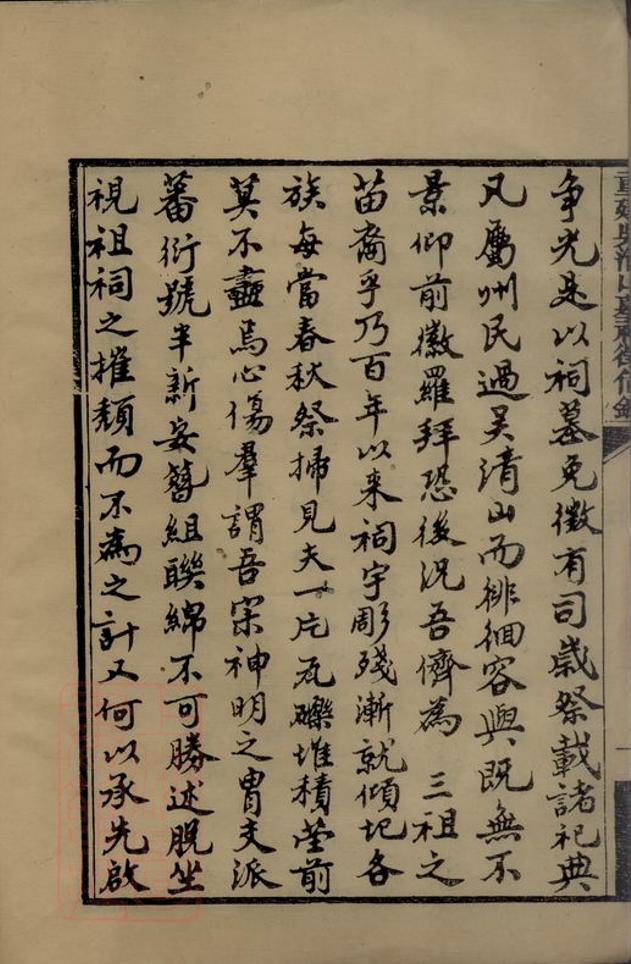 重建吳清山墓祠徵信錄
爭先是以祠墓免徵有司歲祭載諸祀典
凡屬州民過吳清山而徘徊容與既無不
景仰前徽羅拜恐後況吾儕為 三祖之
苗裔乎乃百年以來祠宇彫殘漸就傾圮各
族每當春秋祭掃見夫一片瓦礫堆積塋前
莫不衋焉心傷羣謂吾宗神明之胄支派
蕃衍號半新安簪組聯綿不可勝述脫坐
視祖祠之摧頹而不為之計又何以承先啟